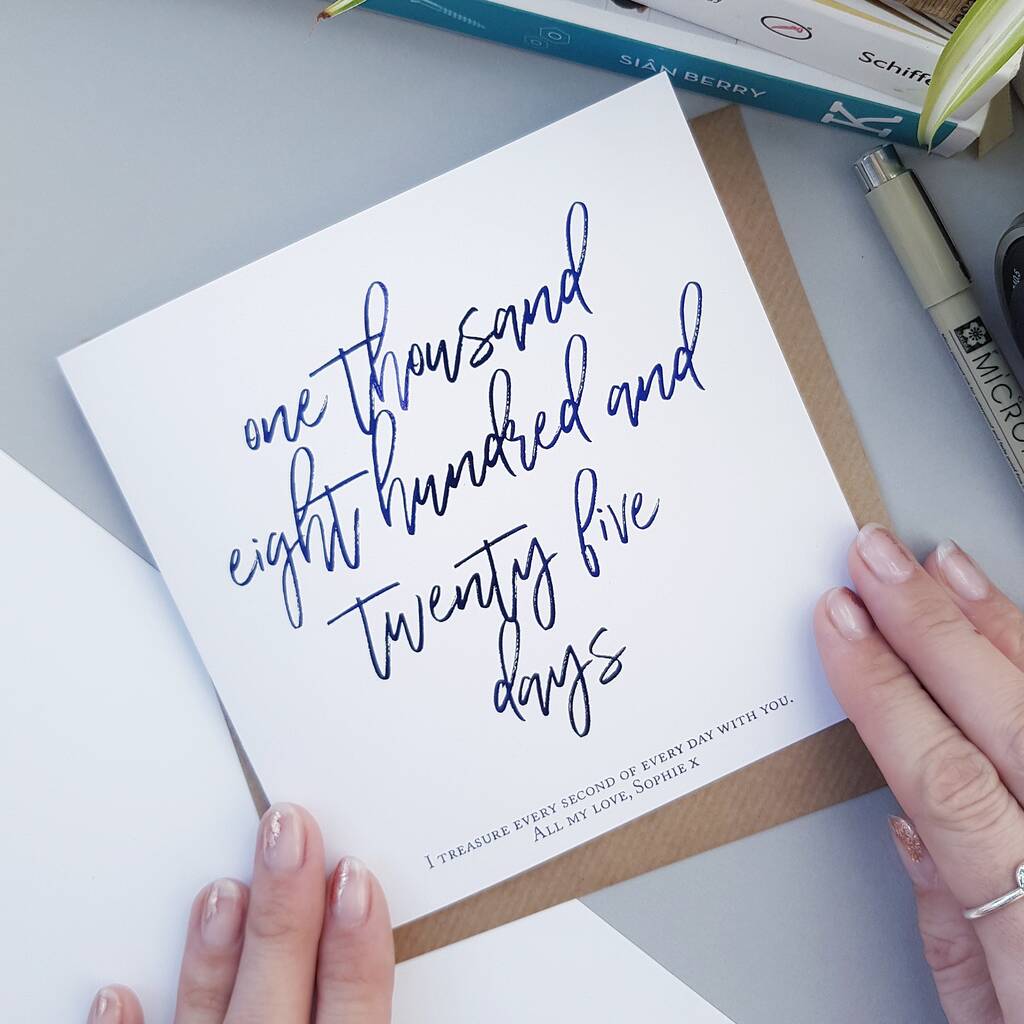 SIÂN BERRY
K
one thousand
eight hundred and
twenty five
days
I treasure every second of every day with you.
All my love, Sophie x